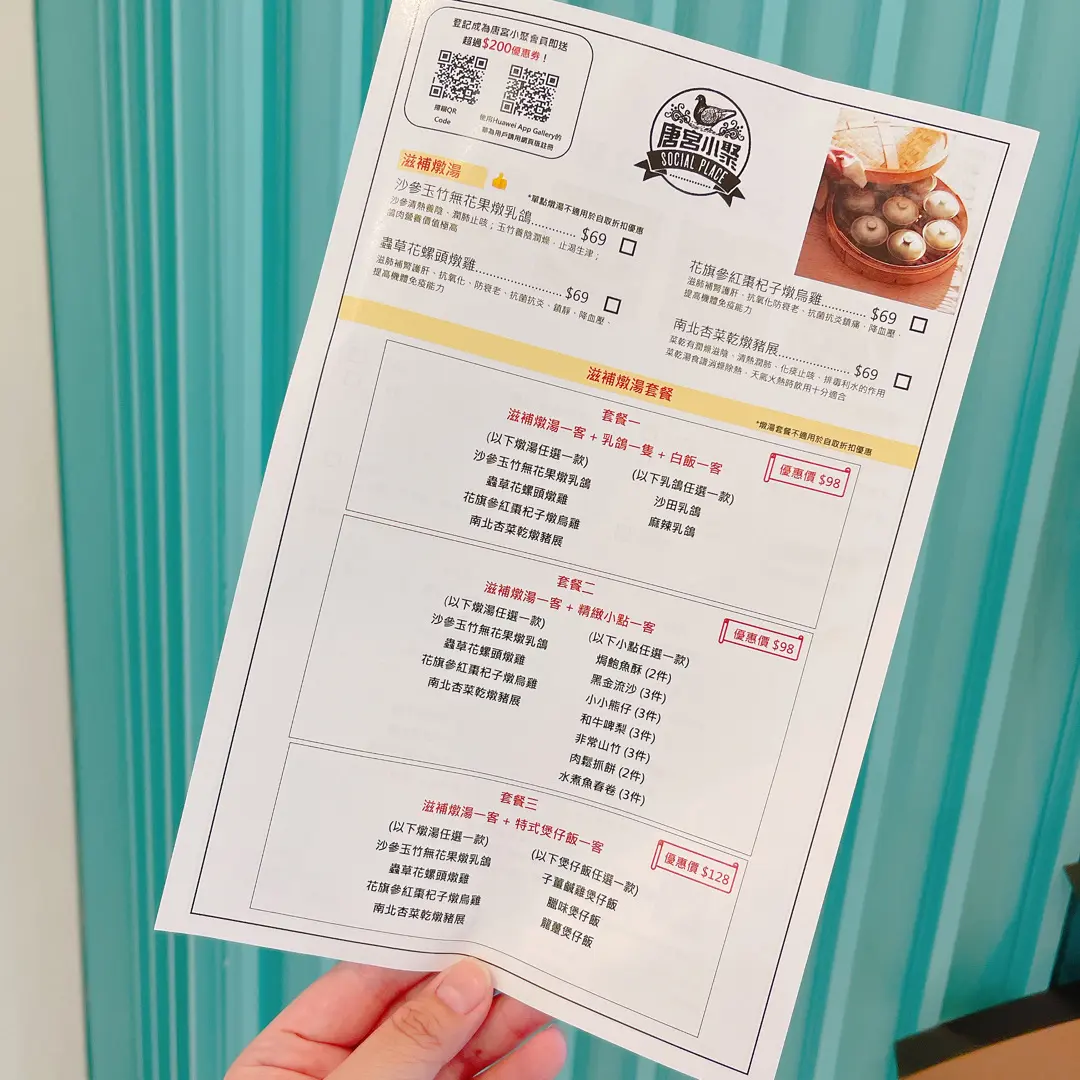 登記成為唐宮小聚會員即送
超過$200優惠券！
掃瞄QR
Code
使用Huawei App Gallery的
華為用戶請用網頁版註冊
唐宮小聚
SOCIAL PLACE
滋補燉湯
*單點燉湯不適用於自取折扣優惠
沙參玉竹無花果燉乳鴿............ $69
沙參清熱養陰、潤肺止咳；玉竹養陰潤燥、止渴生津；
鴿肉營養價值極高
蟲草花螺頭燉雞...................... $69
滋肺補腎護肝、抗氧化、防衰老、抗菌抗炎、鎮靜、降血壓、
提高機體免疫能力
花旗參紅棗杞子燉烏雞........... $69
滋肺補腎護肝、抗氧化防衰老、抗菌抗炎鎮痛、降血壓、
提高機體免疫能力
南北杏菜乾燉豬展.................. $69
菜乾有潤燥滋陰、清熱潤肺、化痰止咳、排毒利水的作用
菜乾湯食譜消燥除熱、天氣火熱時飲用十分適合
滋補燉湯套餐
*燉湯套餐不適用於自取折扣優惠
套餐一
滋補燉湯一客 + 乳鴿一隻 + 白飯一客
優惠價 $98
(以下燉湯任選一款)
沙參玉竹無花果燉乳鴿
蟲草花螺頭燉雞
花旗參紅棗杞子燉烏雞
南北杏菜乾燉豬展
(以下乳鴿任選一款)
沙田乳鴿
麻辣乳鴿
套餐二
滋補燉湯一客 + 精緻小點一客
優惠價 $98
(以下燉湯任選一款)
沙參玉竹無花果燉乳鴿
蟲草花螺頭燉雞
花旗參紅棗杞子燉烏雞
南北杏菜乾燉豬展
(以下小點任選一款)
焗鮑魚酥 (2件)
黑金流沙 (3件)
小小熊仔 (3件)
和牛啤梨 (3件)
非常山竹 (3件)
肉鬆抓餅 (2件)
水煮魚春卷 (3件)
套餐三
滋補燉湯一客 + 特式煲仔飯一客
優惠價 $128
(以下燉湯任選一款)
沙參玉竹無花果燉乳鴿
蟲草花螺頭燉雞
花旗參紅棗杞子燉烏雞
南北杏菜乾燉豬展
(以下煲仔飯任選一款)
子薑鹹雞煲仔飯
臘味煲仔飯
龍躉煲仔飯